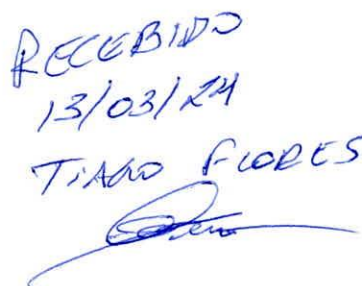 RECEBIDO
13/03/24
TIAGO FLORES